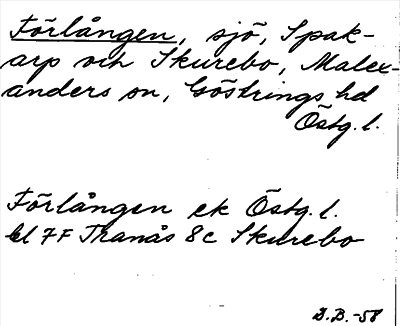 Förlången, sjö, Spak-
arp och Skurebo, Malex-
anders sn, Göstrings hd
Östg. l.
Förlången ek Östg. l.
bl 7F Tranås 8c Skurebo
D.B. -58